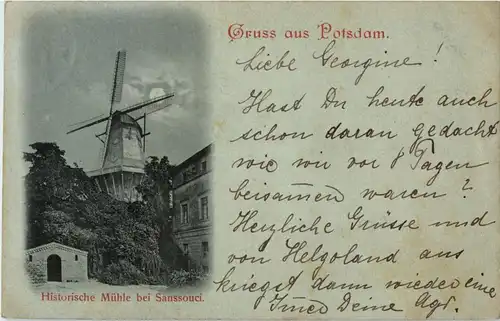 Gruss aus Potsdam.
Liebe Georgine!
Hast Du heute auch
schon daran gedacht
wie wir vor 8 Tagen
beisam̅en waren?
Herzliche Grüsse und
von Helgoland aus
kriegst dann wieder eine
Deine
Historische Mühle bei Sanssouci.